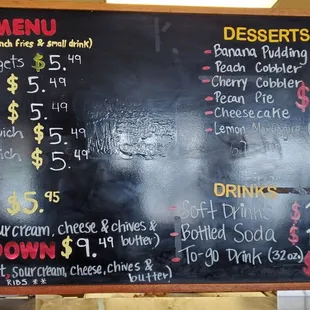 MENU
nch fries & small drink)
gets $5.49
$5.49
$5.49
wich $5.49
ich $5.49
$5.95
ur cream, cheese & chives &
butter)
DOWN $9.49
t, sour cream, cheese, chives &
butter
RIBS **
DESSERTS
- Banana Pudding
- Peach Cobbler
- Cherry Cobbler
- Pecan Pie
- Cheesecake
- Lemon
DRINKS
- Soft Drinks
- Bottled Soda
- To-go Drink (32oz)